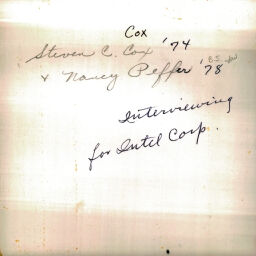 Cox
Steven C. Cox '74
& Nancy Peffer '78
B.S.
Interviewing
for Intel Corp.